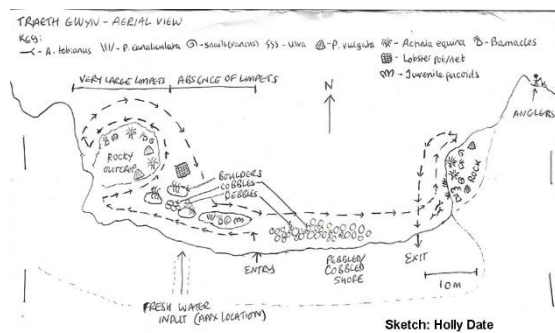 TRAETH GWYN - AERIAL VIEW
KEY:
A. tobianus P. canaliculata snails (various) ulva P. vulgata Actinia equina Barnacles
Lobster pot/net
Juvenile fucoids
VERY LARGE LIMPETS ABSENCE OF LIMPETS
N
ANGLERS
ROCKY
OUTCROP
ROCK
BOULDERS
COBBLES
PEBBLES
ENTRY
PEBBLED/
COBBLED
SHORE
EXIT
10m
FRESH WATER
INPUT (APPX LOCATION)
Sketch: Holly Date